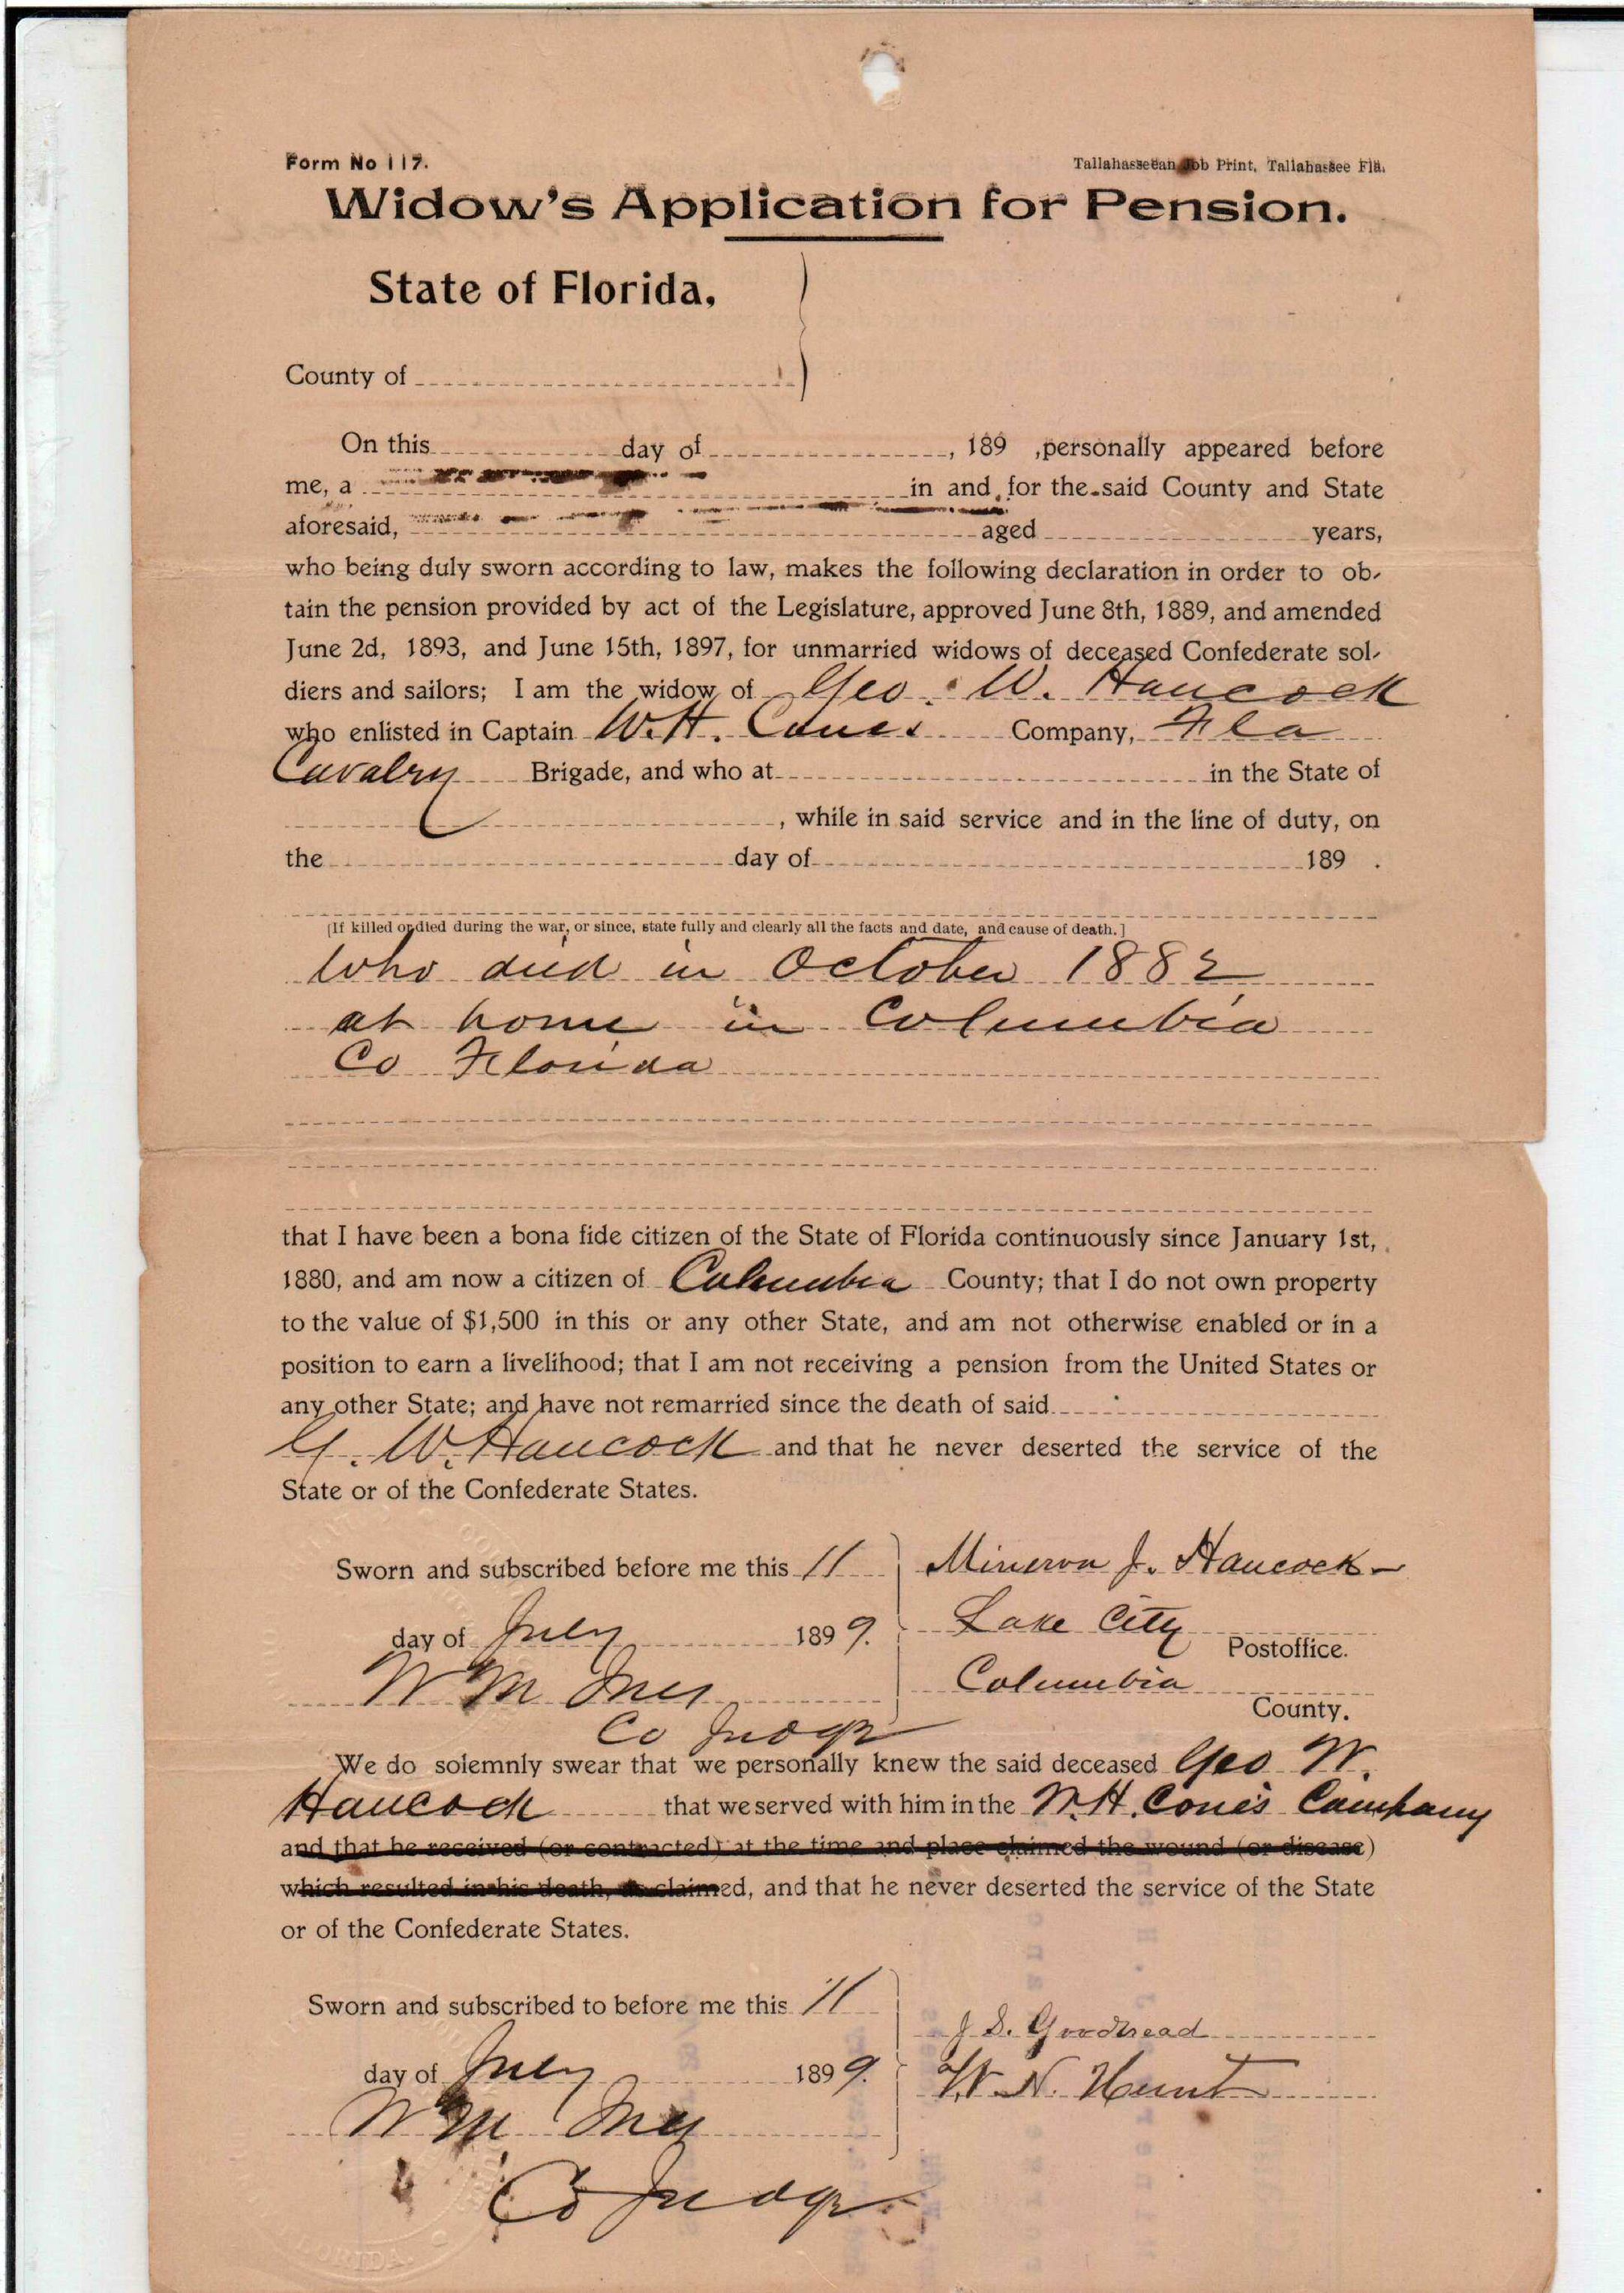 Form No 117.
Tallahasseean Job Print, Tallahassee Fla.
Widow's Application for Pension.
State of Florida,
County of
On this day of , 189 ,personally appeared before
me, a in and for the said County and State
aforesaid, aged years,
who being duly sworn according to law, makes the following declaration in order to ob-
tain the pension provided by act of the Legislature, approved June 8th, 1889, and amended
June 2d, 1893, and June 15th, 1897, for unmarried widows of deceased Confederate sol-
diers and sailors; I am the widow of Geo. W. Hancock
who enlisted in Captain W.H. Cones Company, Fla
Cavalry Brigade, and who at in the State of
, while in said service and in the line of duty, on
the day of 189 .
[If killed or died during the war, or since, state fully and clearly all the facts and date, and cause of death.]
who died in October 1882
at home in Columbia
Co Florida
that I have been a bona fide citizen of the State of Florida continuously since January 1st,
1880, and am now a citizen of Columbia County; that I do not own property
to the value of $1,500 in this or any other State, and am not otherwise enabled or in a
position to earn a livelihood; that I am not receiving a pension from the United States or
any other State; and have not remarried since the death of said
G. W. Hancock and that he never deserted the service of the
State or of the Confederate States.
Sworn and subscribed before me this 11
day of July 1899.
W M Ives
Co Judge
Minerva J. Hancock
Lake City Postoffice.
Columbia County.
We do solemnly swear that we personally knew the said deceased Geo W.
Hancock that we served with him in the W.H. Cone's Company
and that he received (or contracted) at the time and place claimed the wound (or disease)
which resulted in his death, as claimed, and that he never deserted the service of the State
or of the Confederate States.
Sworn and subscribed to before me this 11
day of July 1899.
W M Ives
Co Judge
J. S. Goodbread
W. N. Hunt